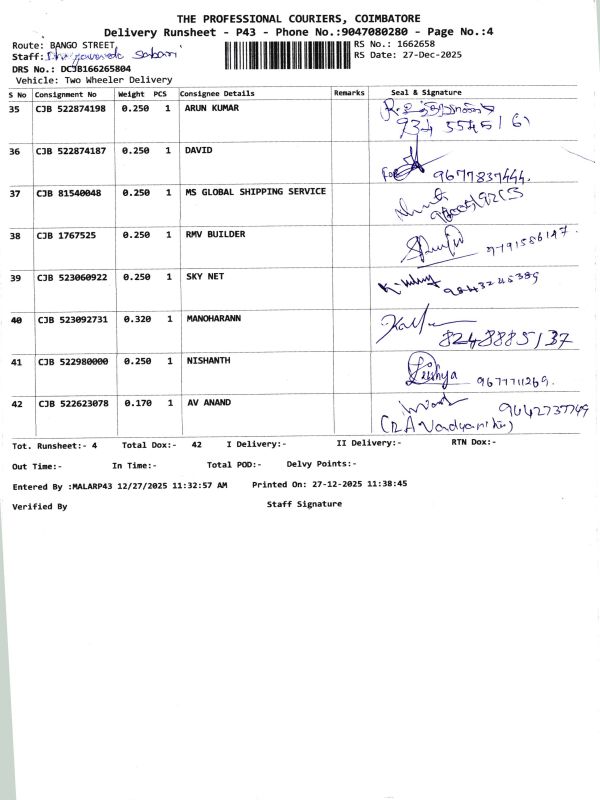 THE PROFESSIONAL COURIERS, COIMBATORE
Delivery Runsheet - P43 - Phone No.:9047080280 - Page No.:4
Route: BANGO STREET RS No.: 1662658
Staff: RS Date: 27-Dec-2025
DRS No.: DCJB166265804
Vehicle: Two Wheeler Delivery
S No Consignment No Weight PCS Consignee Details Remarks Seal & Signature
35 CJB 522874198 0.250 1 ARUN KUMAR
36 CJB 522874187 0.250 1 DAVID
9677837444.
37 CJB 81540048 0.250 1 MS GLOBAL SHIPPING SERVICE
38 CJB 1767525 0.250 1 RMV BUILDER
9791586147.
39 CJB 523060922 0.250 1 SKY NET
40 CJB 523092731 0.320 1 MANOHARANN
8248885137
41 CJB 522980000 0.250 1 NISHANTH
9677711269.
42 CJB 522623078 0.170 1 AV ANAND
9642737749
Tot. Runsheet:- 4 Total Dox:- 42 I Delivery:- II Delivery:- RTN Dox:-
Out Time:- In Time:- Total POD:- Delvy Points:-
Entered By :MALARP43 12/27/2025 11:32:57 AM Printed On: 27-12-2025 11:38:45
Verified By Staff Signature